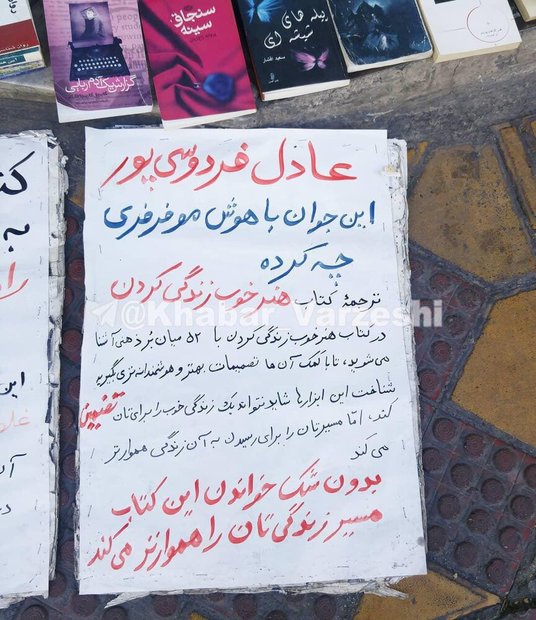 گزارش یک آدم ربایی
سنجاق
سینه
پیله های
شیشه ای
عادل فردوسی پور
این جوان با هوش مو فرفری
چه کرده
ترجمهٔ کتاب هنر خوب زندگی کردن
@Khabar_Varzeshi
در کتاب هنر خوب زندگی کردن با ۵۲ میان بُر ذهنی آشنا
می شوید، تا با کمک آن ها تصمیمات بهتر و هوشمندانه تری بگیرید
شناخت این ابزارها شاید نتواند یک زندگی خوب را برای تان تضمین
کند، امّا مسیرتان را برای رسیدن به آن زندگی هموارتر
می کند
بدون شک خواندن این کتاب
مسیر زندگی تان را هموارتر می کند